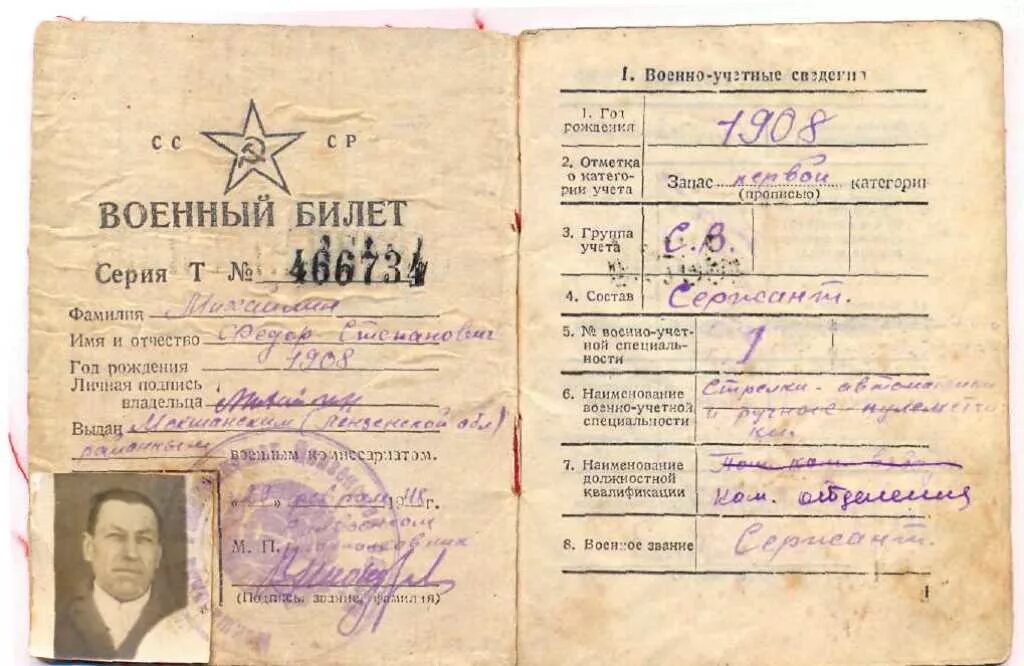 СС СР
ВОЕННЫЙ БИЛЕТ
Серия Т № 466734
Фамилия Михайлин
Имя и отчество Федор Степанович
Год рождения 1908
Личная подпись
владельца
Выдан Мокшанским (пензенской обл)
районным военным комиссариатом.
февраля 1948 г.
М. П.
(Подпись, звание, фамилия)
1. Военно-учетные сведения
1. Год рождения 1908
2. Отметка о категории учета Запас первой категории
(прописью)
3. Группа учета С.В.
4. Состав Сержант.
5. № военно-учетной специальности 1
6. Наименование военно-учетной специальности Стрелки-автоматчики и ручные пулеметчики.
7. Наименование должностной квалификации
ком. отделения
8. Военное звание Сержант.
1